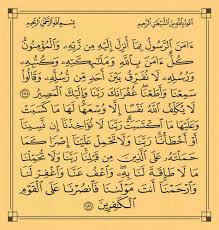 أعوذ بالله من الشيطان الرجيم
بسم الله الرحمن الرحيم
ءَامَنَ ٱلرَّسُولُ بِمَآ أُنزِلَ إِلَيْهِ مِن رَّبِّهِۦ وَٱلْمُؤْمِنُونَ
كُلٌّ ءَامَنَ بِٱللَّهِ وَمَلَـٰٓئِكَتِهِۦ وَكُتُبِهِۦ
وَرُسُلِهِۦ لَا نُفَرِّقُ بَيْنَ أَحَدٍ مِّن رُّسُلِهِۦ وَقَالُوا۟
سَمِعْنَا وَأَطَعْنَا غُفْرَانَكَ رَبَّنَا وَإِلَيْكَ ٱلْمَصِيرُ ٢٨٥
لَا يُكَلِّفُ ٱللَّهُ نَفْسًا إِلَّا وُسْعَهَا لَهَا مَا كَسَبَتْ
وَعَلَيْهَا مَا ٱكْتَسَبَتْ رَبَّنَا لَا تُؤَاخِذْنَآ إِن نَّسِينَآ
أَوْ أَخْطَأْنَا رَبَّنَا وَلَا تَحْمِلْ عَلَيْنَآ إِصْرًا كَمَا
حَمَلْتَهُۥ عَلَى ٱلَّذِينَ مِن قَبْلِنَا رَبَّنَا وَلَا تُحَمِّلْنَا
مَا لَا طَاقَةَ لَنَا بِهِۦ وَٱعْفُ عَنَّا وَٱغْفِرْ لَنَا
وَٱرْحَمْنَآ أَنتَ مَوْلَىٰنَا فَٱنصُرْنَا عَلَى ٱلْقَوْمِ
ٱلْكَـٰفِرِينَ ٢٨٦